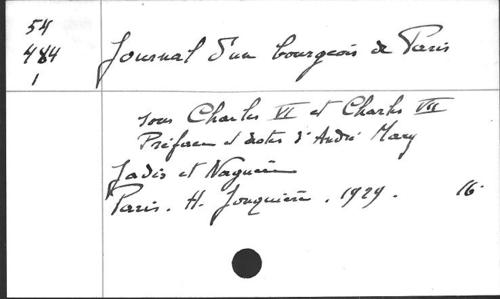 54
484
1
Journal d'un bourgeois de Paris
sous Charles VI et Charles VII
Préface et notes d'André Mary
Jadis et Naguère
Paris. H. Jonquière. 1929. 16°